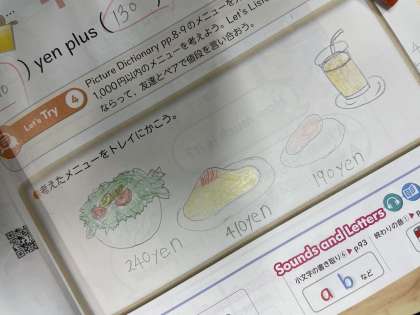 ) yen plus ( 130
Let's Try 4
Picture Dictionary pp.8-9のメニューを
1,000円以内のメニューを考えよう。Let's List
ならって、友達とペアで値段を言い合おう。
考えたメニューをトレイにかこう。
240yen
410yen
190yen
Sounds and Letters
小文字の書き取り⑥ ▶ p.93
終わりの音① ▶ p
a b など